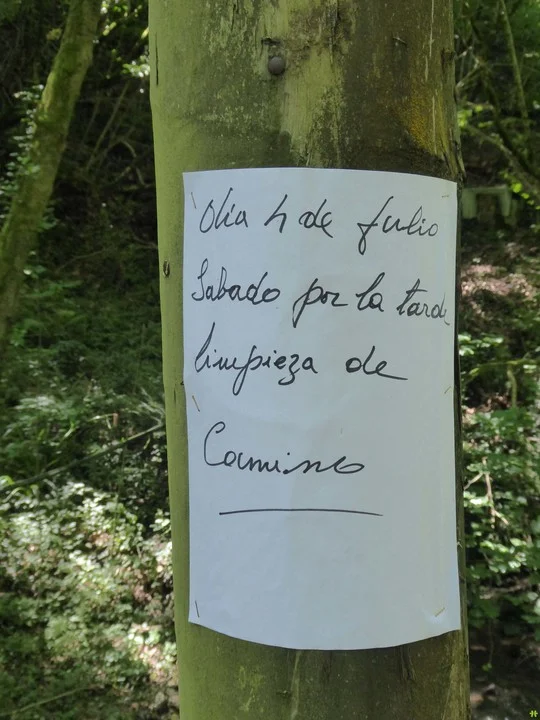 Dia 4 de Julio
Sabado por la tarde
limpieza de
Camino